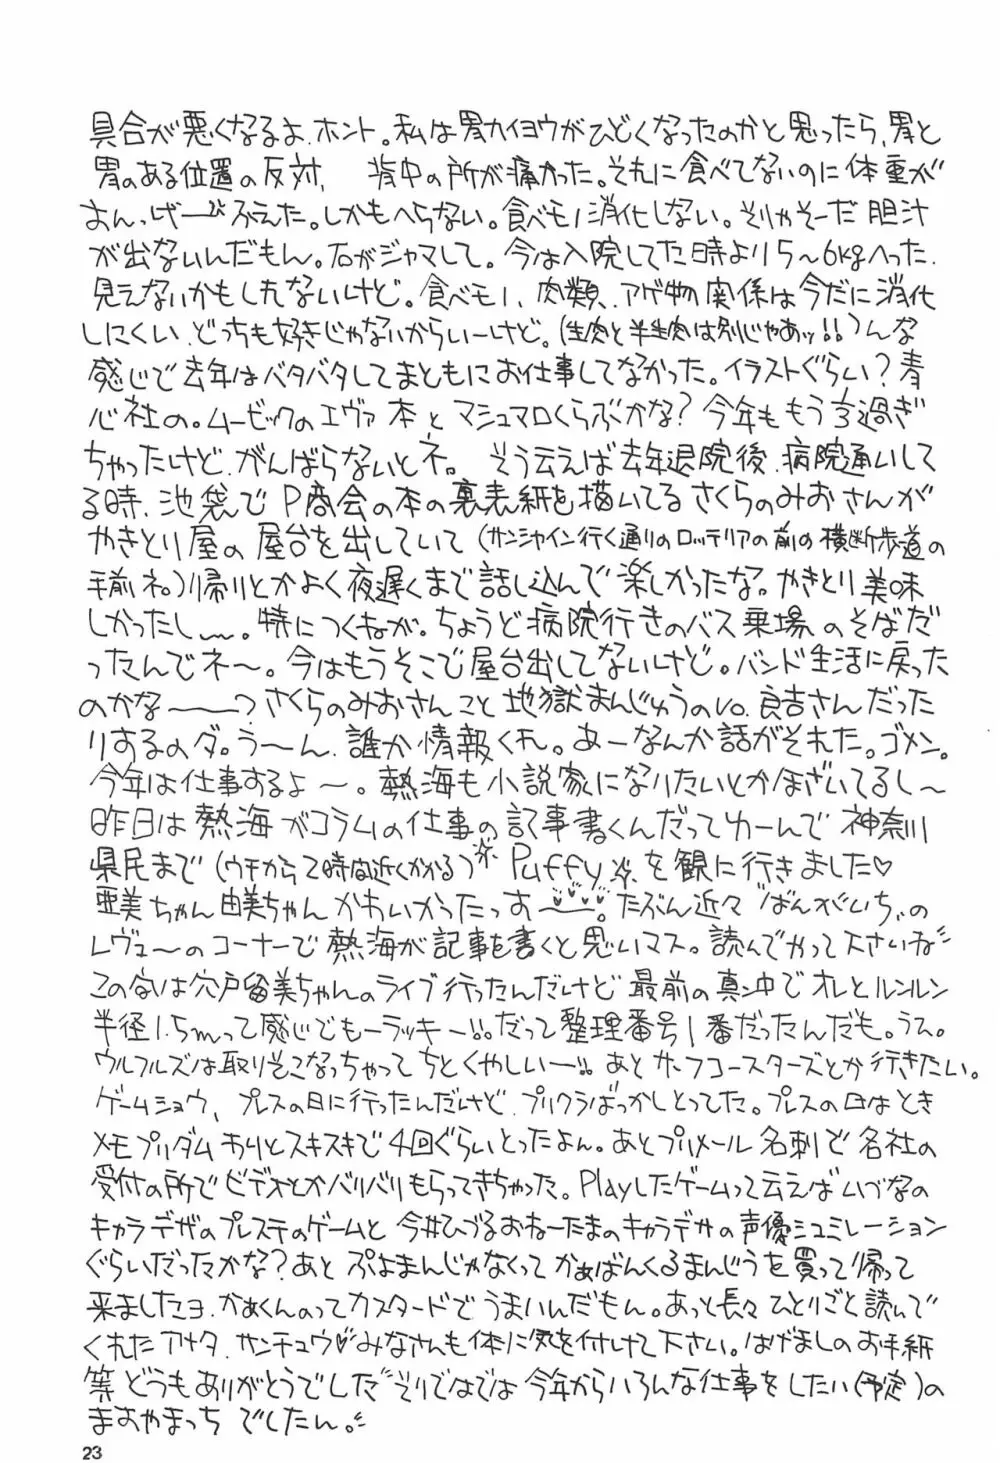 具合が悪くなるよ、ホント。私は胃カイヨウがひどくなったのかと思ったら、胃と
胃のある位置の反対、背中の所が痛かった。それに食べてないのに体重が
すんっげーびふえた。しかもへらない。食べモノ消化しない。そりゃそーだ胆汁
が出ないんだもん。石がジャマして。今は入院してた時より5〜6kgへった、
見えないかもしれないけど。食べモノ、肉類、アゲ物関係は今だに消化
しにくい、どっちも好きじゃないからいーけど。(生肉と半生肉は別じゃあッ!!)んな
感じで去年はバタバタしてまともにお仕事してなかった。イラストぐらい?青
心社の。ムービックのエヴァ本とマシュマロくらぶかな?今年ももう過ぎ
ちゃったけど、がんばらないとネ。そう云えば去年退院後、病院通いして
る時、池袋でP商会の本の裏表紙を描いてるさくらのみおさんが
やきとり屋の屋台を出していて(サンシャイン行く通りのロッテリアの前の横断歩道の
手前ネ。)帰りとかよく夜遅くまで話し込んで楽しかったな。やきとり美味
しかったし〜。特につくねが。ちょうど病院行きのバス乗場のそばだ
ったんでネ〜。今はもうそこで屋台出してないけど。バンド生活に戻った
のかな〜?さくらのみおさんこと地獄まんじゅうのVo.良吉さんだった
りするのダ。う〜ん、誰か情報くれ。あーなんか話がそれた。ゴメン。
今年は仕事するよ〜。熱海も小説家になりたいとかほざいてるし〜
昨日は熱海がコラムの仕事の記事書くんだってゆーんで神奈川
県民まで(ウチから2時間近くかかる)Puffyを観に行きました♡
亜美ちゃん由美ちゃんかわいかったっす〜♥♥♥。たぶん近々"ばんがいち"の
レヴュ〜のコーナーで熱海が記事を書くと思いマス。読んでやって下さいね
この前は宍戸留美ちゃんのライブ行ったんだけど最前の真ン中でオレとルンルン
半径1.5mって感じでもーラッキー!!。だって整理番号1番だったんだも。うス。
ウルフルズは取りそこなっちゃってちとくやしいー!!あとサーフコースターズとか行きたい。
ゲームショウ、プレスの日に行ったんだけど、プリクラばっかしとってた。プレスの日はとき
メモプリダムおりとスキスキで4回ぐらいとったよん。あとプリメール名刺で各社の
受付の所でビデオとかバリバリもらってきちゃった。Playしたゲームって云えばいづなの
キャラデザのプレステのゲームと今井ひづるおねーたまのキャラデザの声優シュミレーション
ぐらいだったかな?あとぷよまんじゃなくってかぁばんくるまんじうを買って帰って
来ましたヨ、かぁくんのってカスタードでうまいんだもん。あっと長々ひとりごと読んで
くれたアナタ、カンチュウ♡みなさんも体に気を付けて下さい。はげましのお手紙
等どうもありがとうでした。それではでは今年からいろんな仕事をしたい(予定)の
まおやまっちでしたん。
23